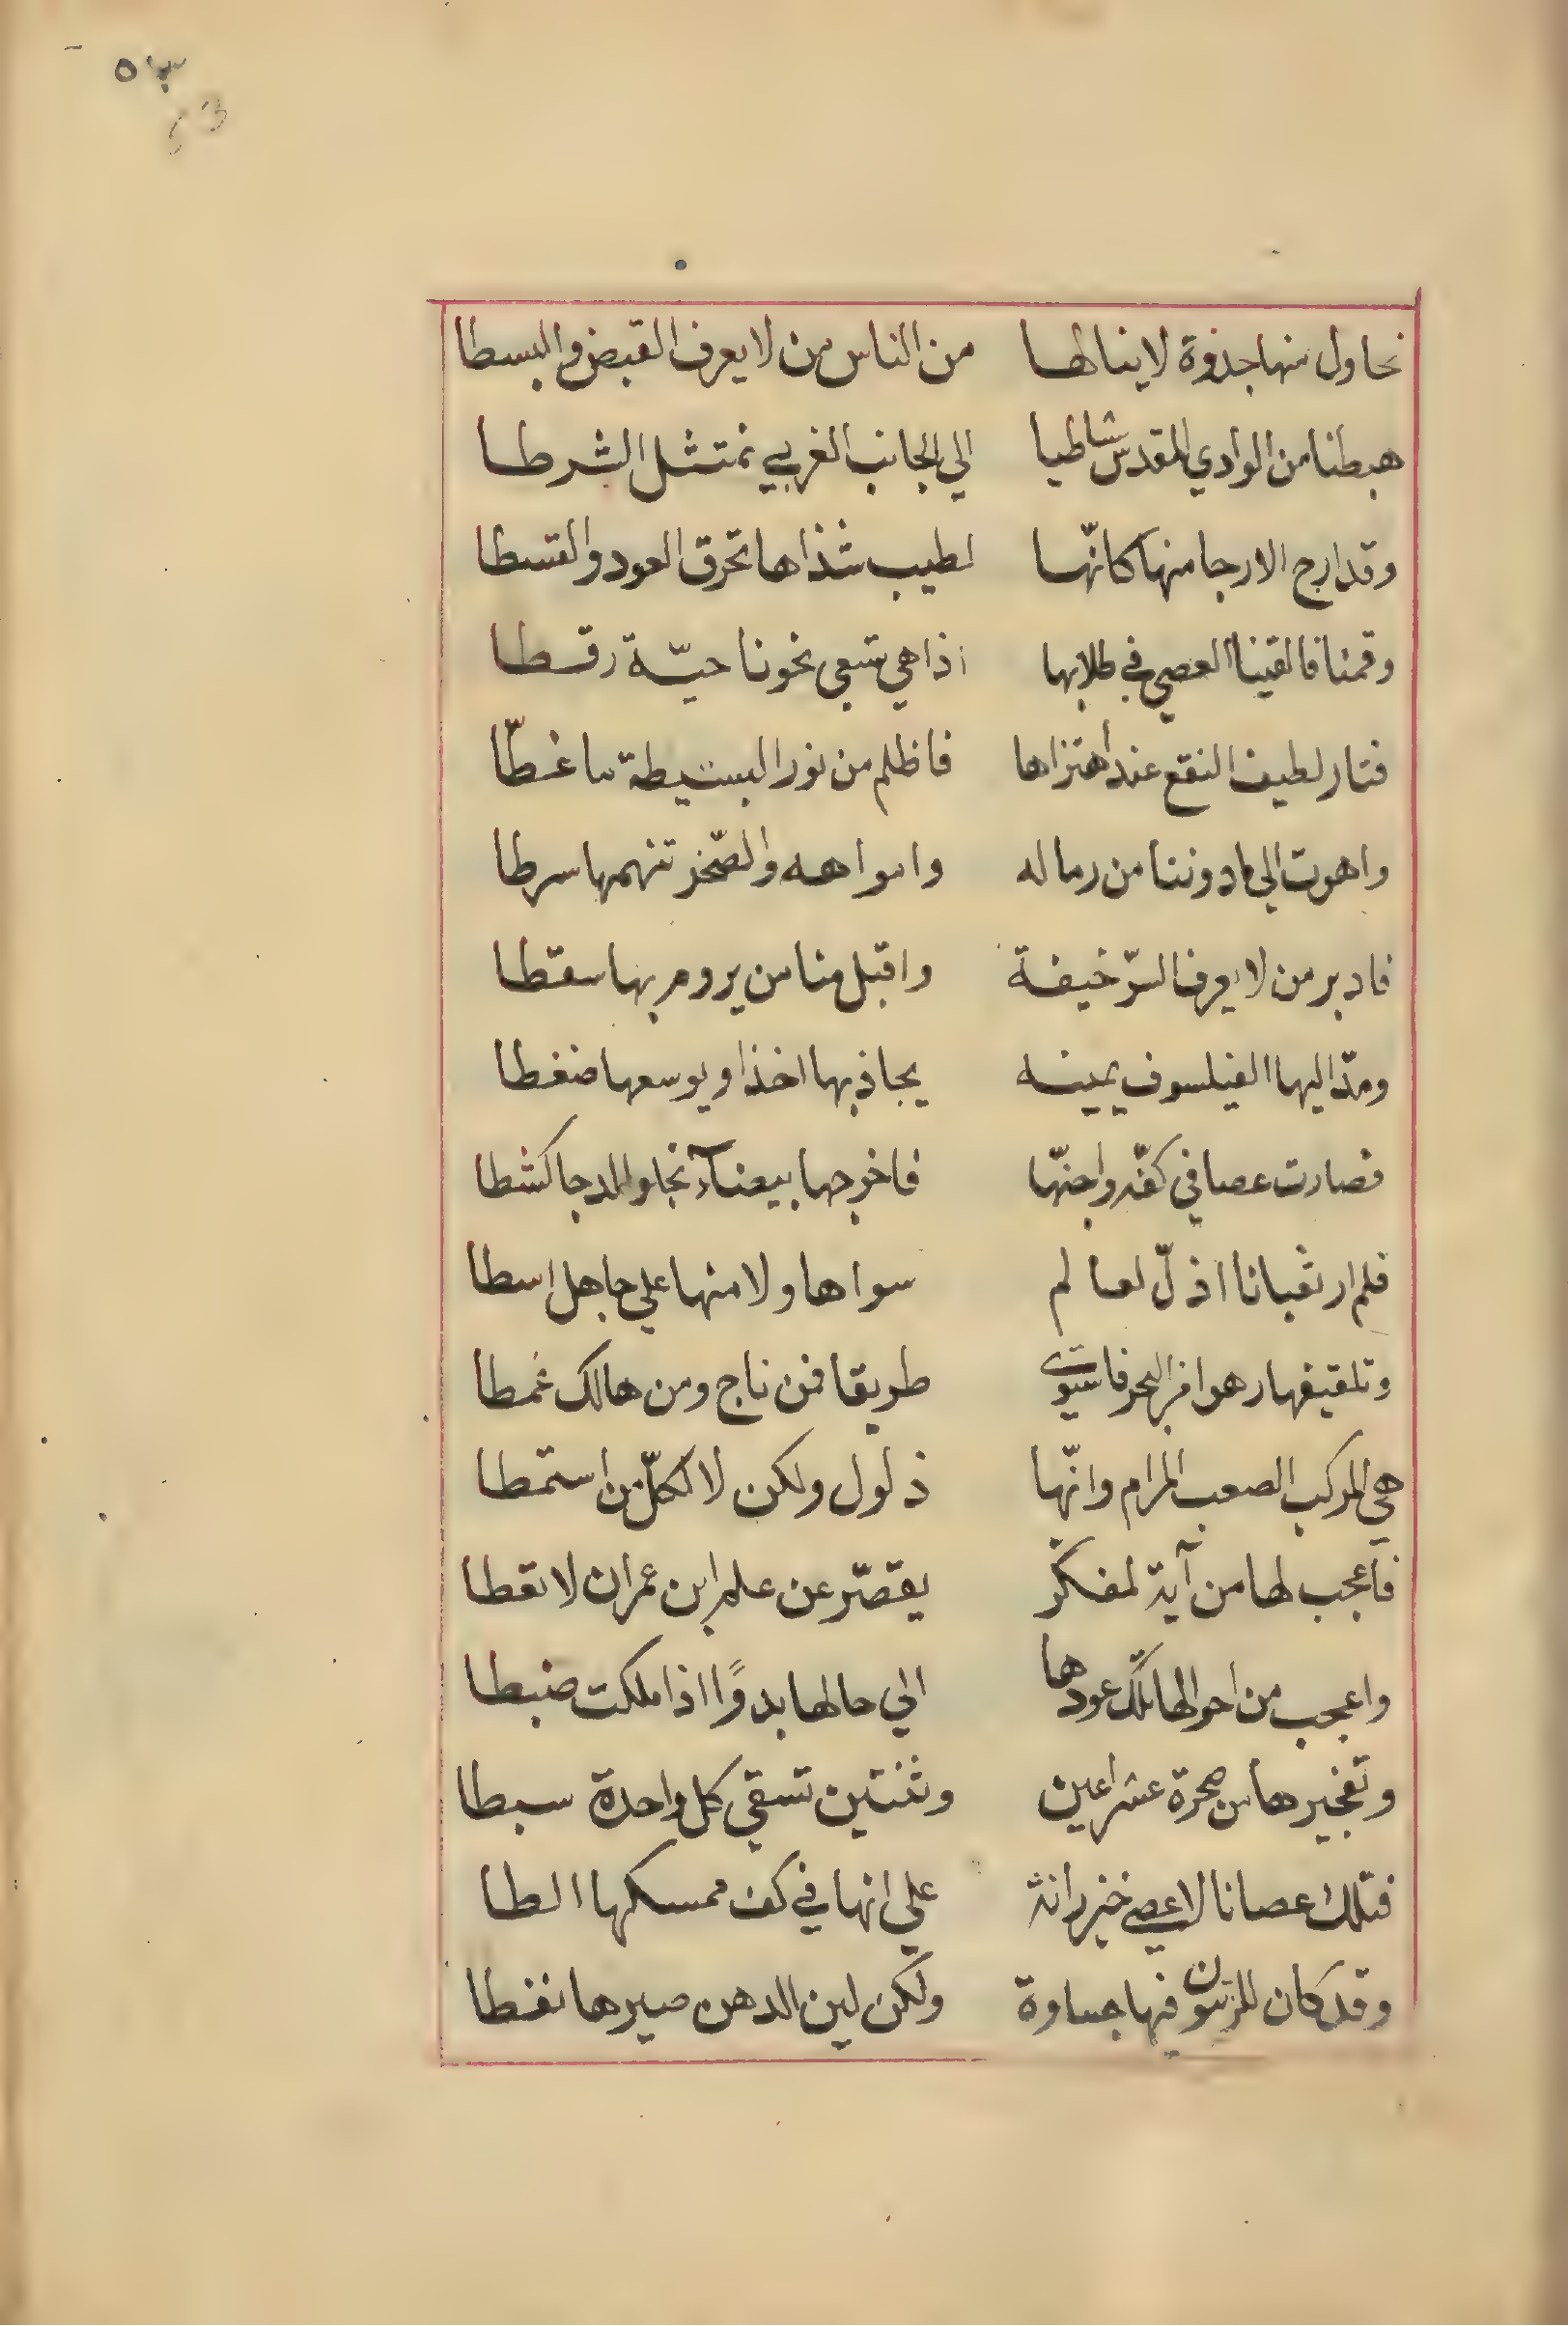 ٥٣
53
نحاول منها جذوة لا ينالها من الناس من لا يعرف القبض والبسطا
هبطنا من الوادي المقدس شاطيا الي الجانب الغربي نمتثل الشرطا
وقد ارج الارجا منها كانّها لطيب شذاها تحرق العود والقسطا
وقمنا فالقينا العصي في طلابها اذا هي تسعي نحونا حيّة رقطا
فثار لطيف النقع عند اهتزاها فاظلم من نور البسيطة ما غطّا
واهوت الي ما دوننا من رماله وامواهه والصّخر تنهمها سرطا
فادبر من لا يعرف السرّ خيفة واقبل منا من يروم بها سقطا
ومدّ اليها الفيلسوف يمينه يجاذبها اخذا ويوسعها ضغطا
فصارت عصا في كفّه واجنّها فاخرجها بيضآء تجلو الدجا كشطا
فلم ار ثعبانا اذلّ لعالم سواها ولا منها علي جاهل اسطا
وتلقيفها رهوا من البحر فاستوي طريقا فمن ناج ومن هالك غمطا
هي المركب الصعب المرام وانّها ذلول ولكن لا لكلّ من استمطا
فاعجب لها من آية لمفكر يقصّر عن علم ابن عمران لا تعطا
واعجب من احوالها تلك عودها الي حالها بدوًا اذا ملكت ضبطا
وتفجيرها من صخرة عشر اعين وثنتين تسقي كل واحدة سبطا
فتلك عصانا لا عصي خيزرانة علي انها في كف ممسكها الطا
وقد كان للزيتون فيها جساوة ولكن لين الدهن صيرها نفطا